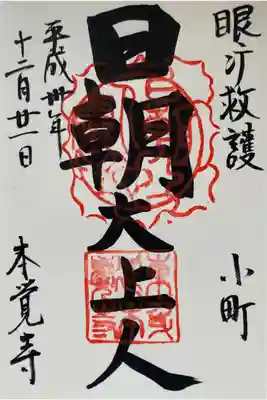 眼疒救護
小町
日朝大上人
平成卅年
十二月廿一日
本覺寺